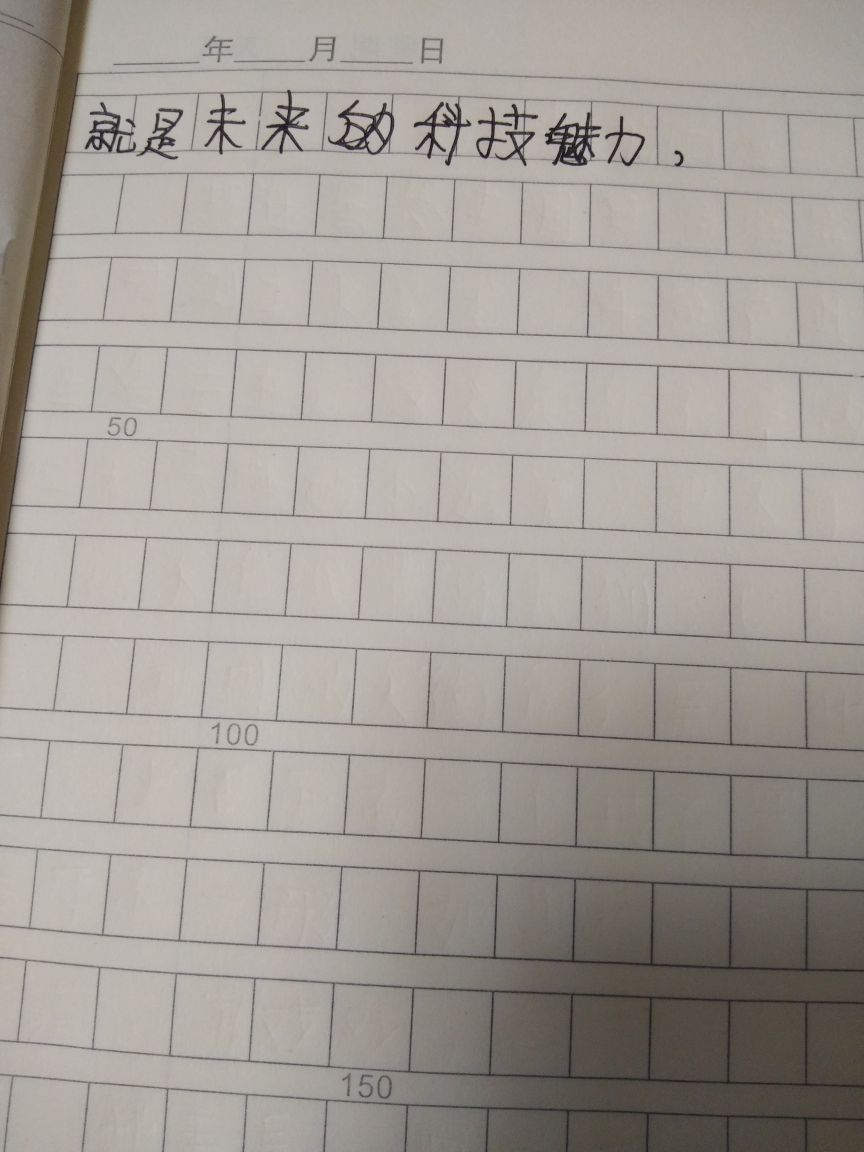 年 月 日
就是未来的科技魅力,
50
100
150